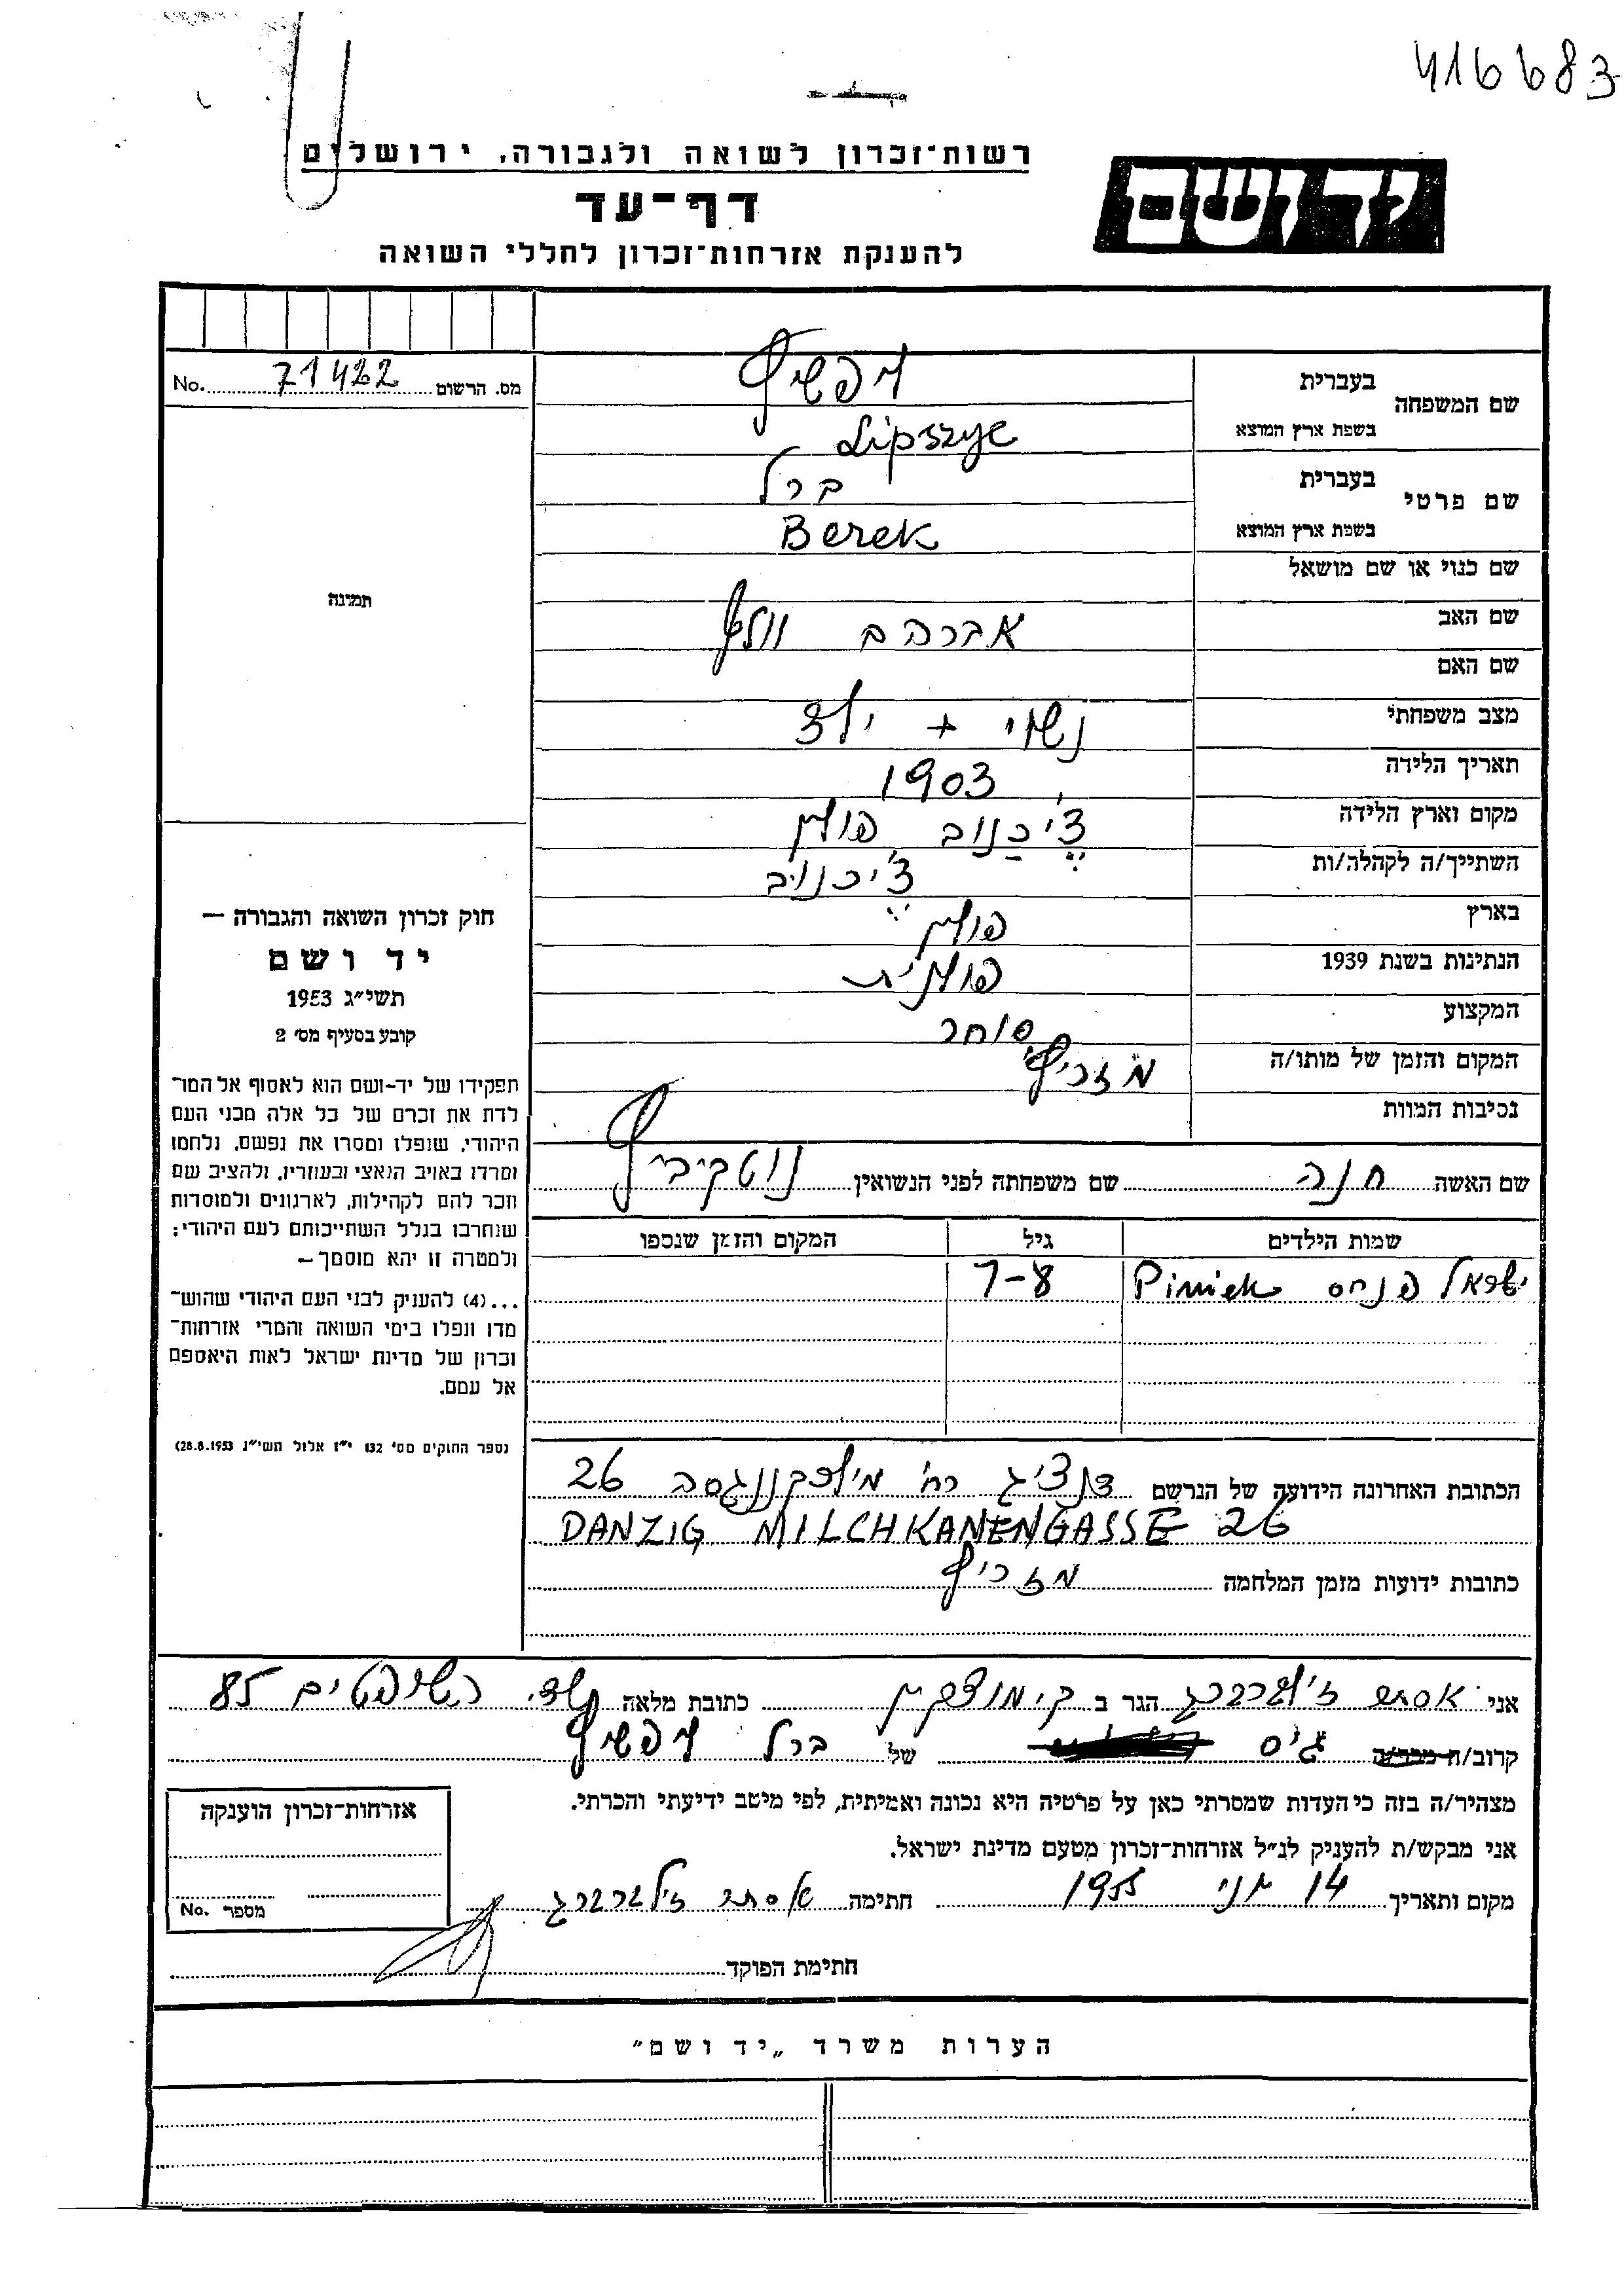 416683
רשות־זכרון לשואה ולגבורה, ירושלים
דף־עד
להענקת אזרחות־זכרון לחללי השואה
יד ושם
מס. הרשום 71422 No.
שם המשפחה
בעברית ליפשיץ
בשפת ארץ המוצא Lipszyc
שם פרטי
בעברית ברל
בשפת ארץ המוצא Berek
שם כנוי או שם מושאל
שם האב אברהם וולף
שם האם
מצב משפחתי נשוי + ילד
תאריך הלידה 1903
מקום וארץ הלידה צ'יכנוב פולין
השתייך/ה לקהלה/ות צ'יכנוב
בארץ פולין
הנתינות בשנת 1939 פולנית
המקצוע סוחר
המקום והזמן של מותו/ה מזריץ'
נסיבות המוות
שם האשה חנה שם משפחתה לפני הנשואין נוטקיביץ
שמות הילדים גיל המקום והזמן שנספו
ישראל פנחס Piniek 7-8
הכתובת האחרונה הידועה של הנרשם דנציג רח' מילכקננגסה 26
DANZIG MILCHKANENGASSE 26
כתובות ידועות מזמן המלחמה מזריץ
תמונה
חוק זכרון השואה והגבורה —
יד ושם
תשי״ג 1953
קובע בסעיף מס׳ 2
תפקידו של יד־ושם הוא לאסוף אל המו־
לדת את זכרם של כל אלה מבני העם
היהודי, שנפלו ומסרו את נפשם, נלחמו
ומרדו באויב הנאצי ובעוזריו, ולהציב שם
וזכר להם לקהילות, לארגונים ולמוסדות
שנחרבו בגלל השתייכותם לעם היהודי;
ולמטרה זו יהא מוסמך —
...(4) להעניק לבני העם היהודי שהוש־
מדו ונפלו בימי השואה והמרי אזרחות־
זכרון של מדינת ישראל לאות היאספם
אל עמם.
(ספר החוקים מס׳ 132 י״ז אלול תשי״ג 28.8.1953)
אני אסתר זילברברג הגר ב ק. מוצקין כתובת מלאה שד. השופטים 85
קרוב/ה מכר/ה גיס של ברל ליפשיץ
מצהיר/ה בזה כי העדות שמסרתי כאן על פרטיה היא נכונה ואמיתית, לפי מיטב ידיעתי והכרתי.
אני מבקש/ת להעניק לנ״ל אזרחות־זכרון מטעם מדינת ישראל.
מקום ותאריך 14 יוני 1955 חתימה אסתר זילברברג
חתימת הפוקד
אזרחות־זכרון הוענקה
מספר No.
הערות משרד „יד ושם״